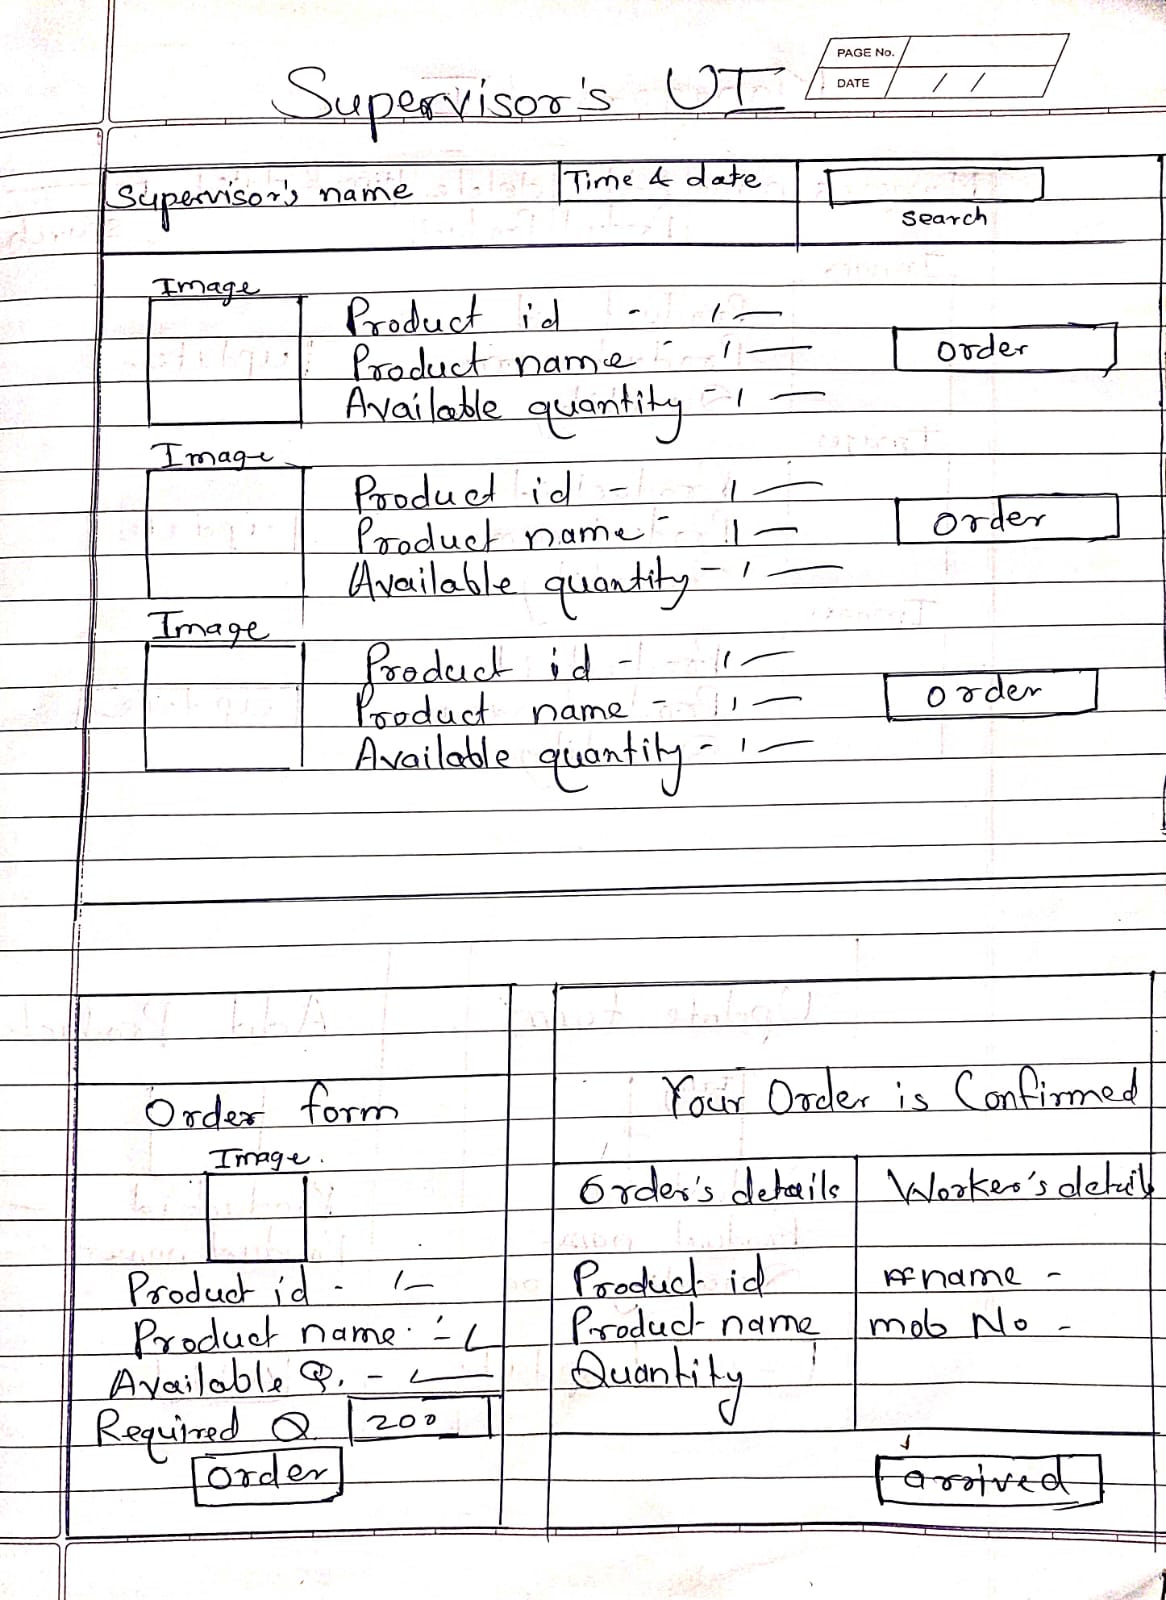 PAGE No.
DATE / /
Supervisor's UI
Supervisor's name
Time & date
Search
Image
Product id - ı —
Product name - ı —
Available quantity - ı —
order
Image
Product id - ı —
Product name - ı —
Available quantity - ı —
order
Image
Product id - ı —
Product name - ı —
Available quantity - ı —
order
Order form
Image.
Product id -
Product name -
Available Q. -
Required Q 200
order
Your Order is Confirmed
Order's details
Product id
Product name
Quantity
Worker's details
name -
mob No -
arrived